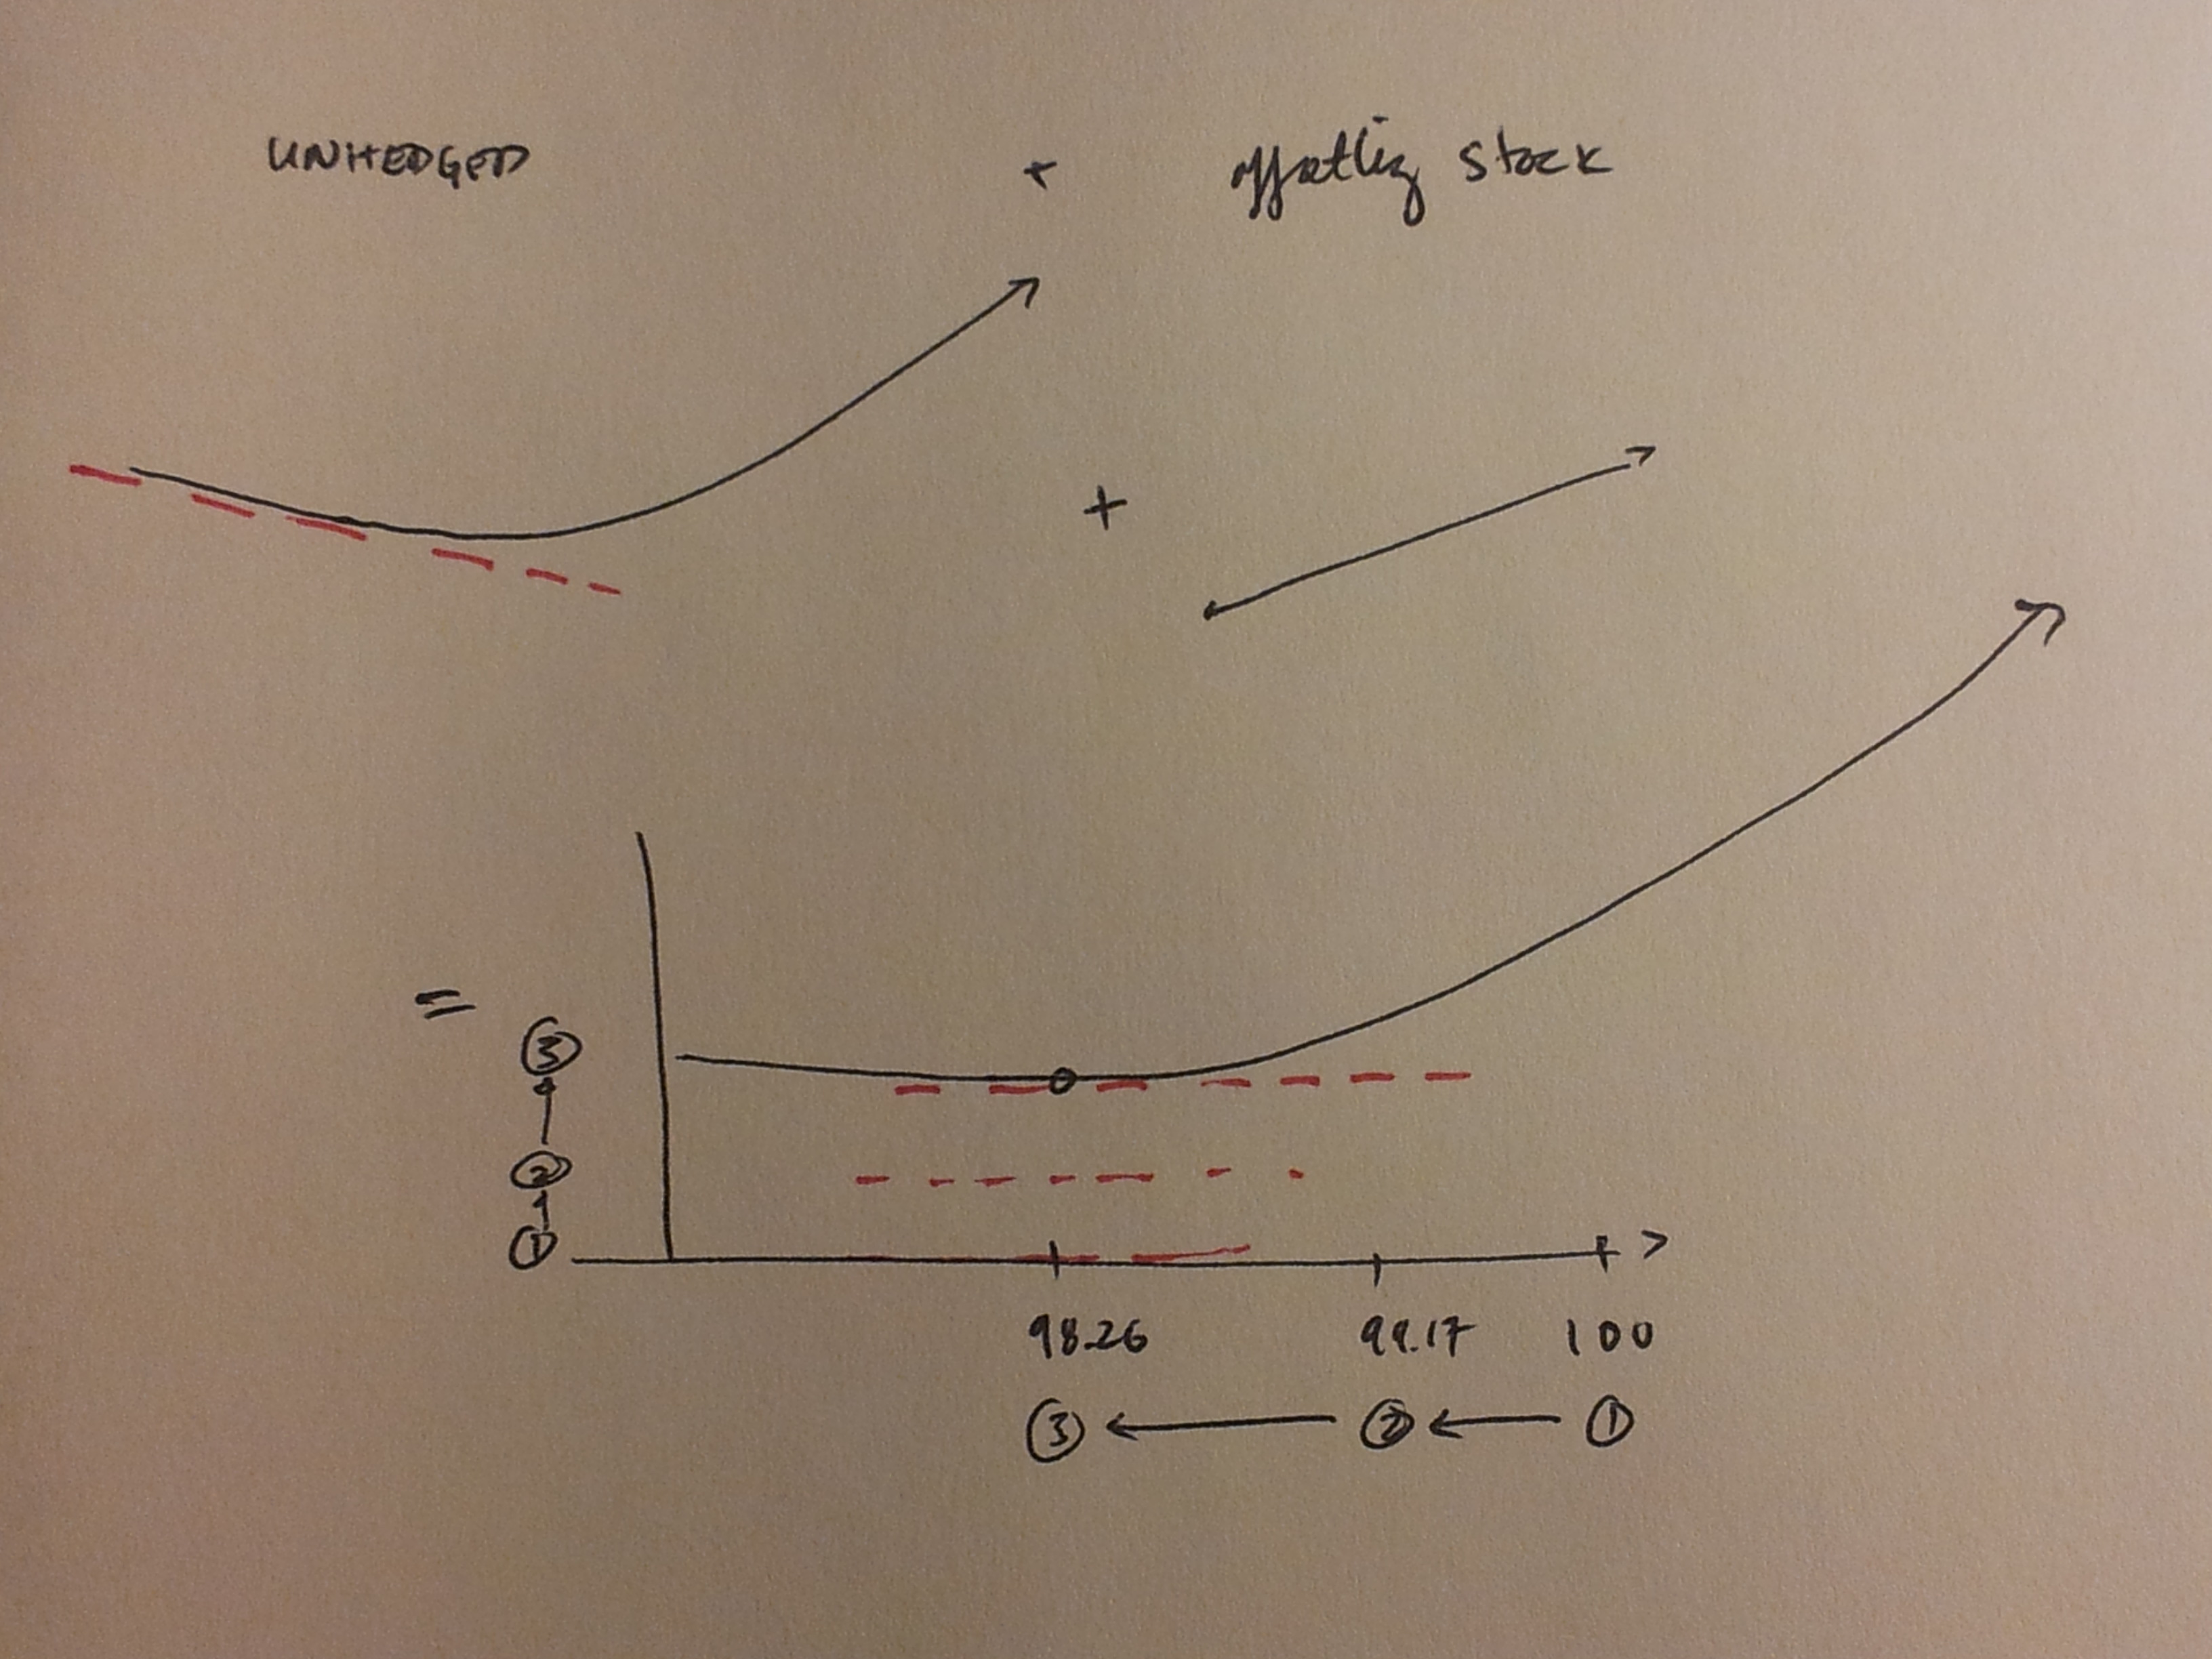 UNHEDGED + offsetting stock
+
=
③
②
①
98.26 99.17 100
③ ② ①